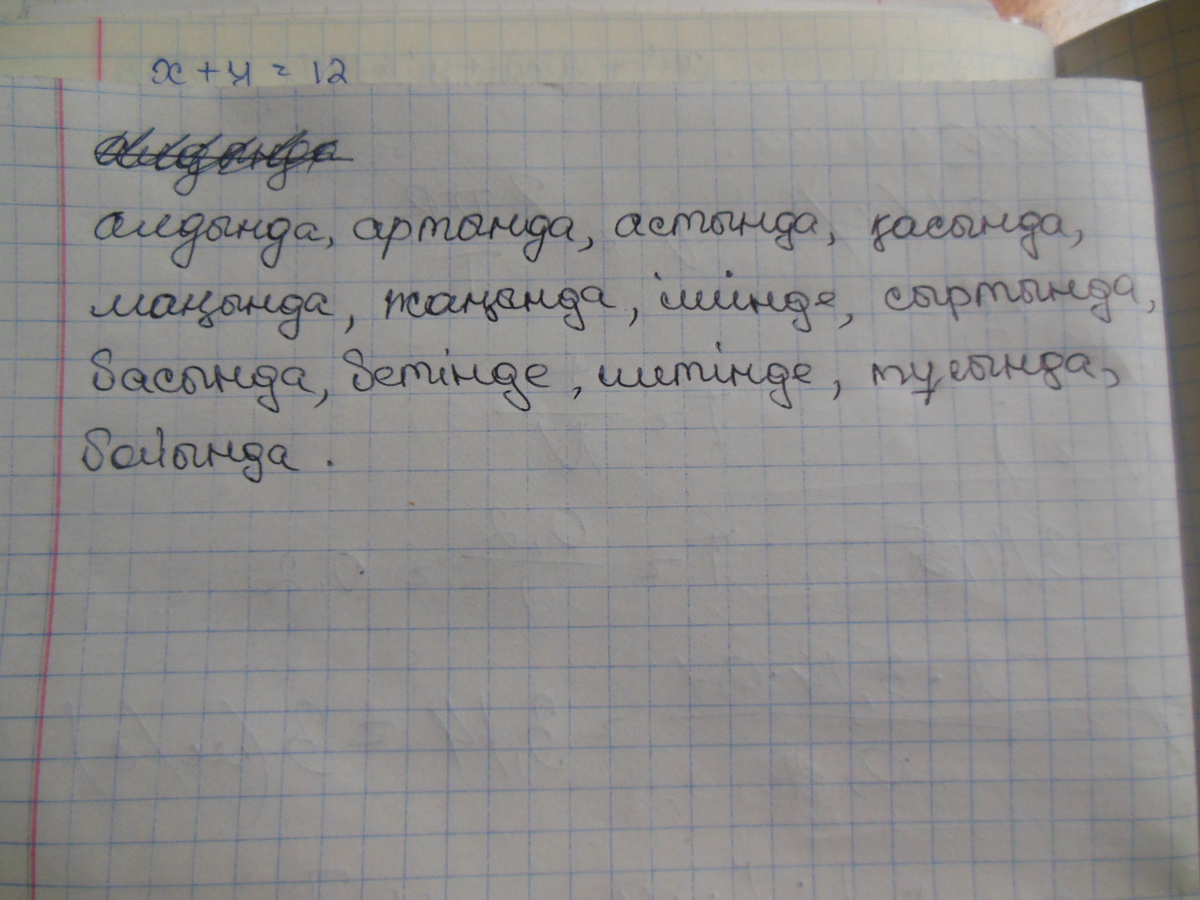 x + y = 12
алдында, артында, астында, қасында,
маңында, жаңында, ішінде, сыртында,
басында, бетінде, шетінде, тұсында,
бойында.